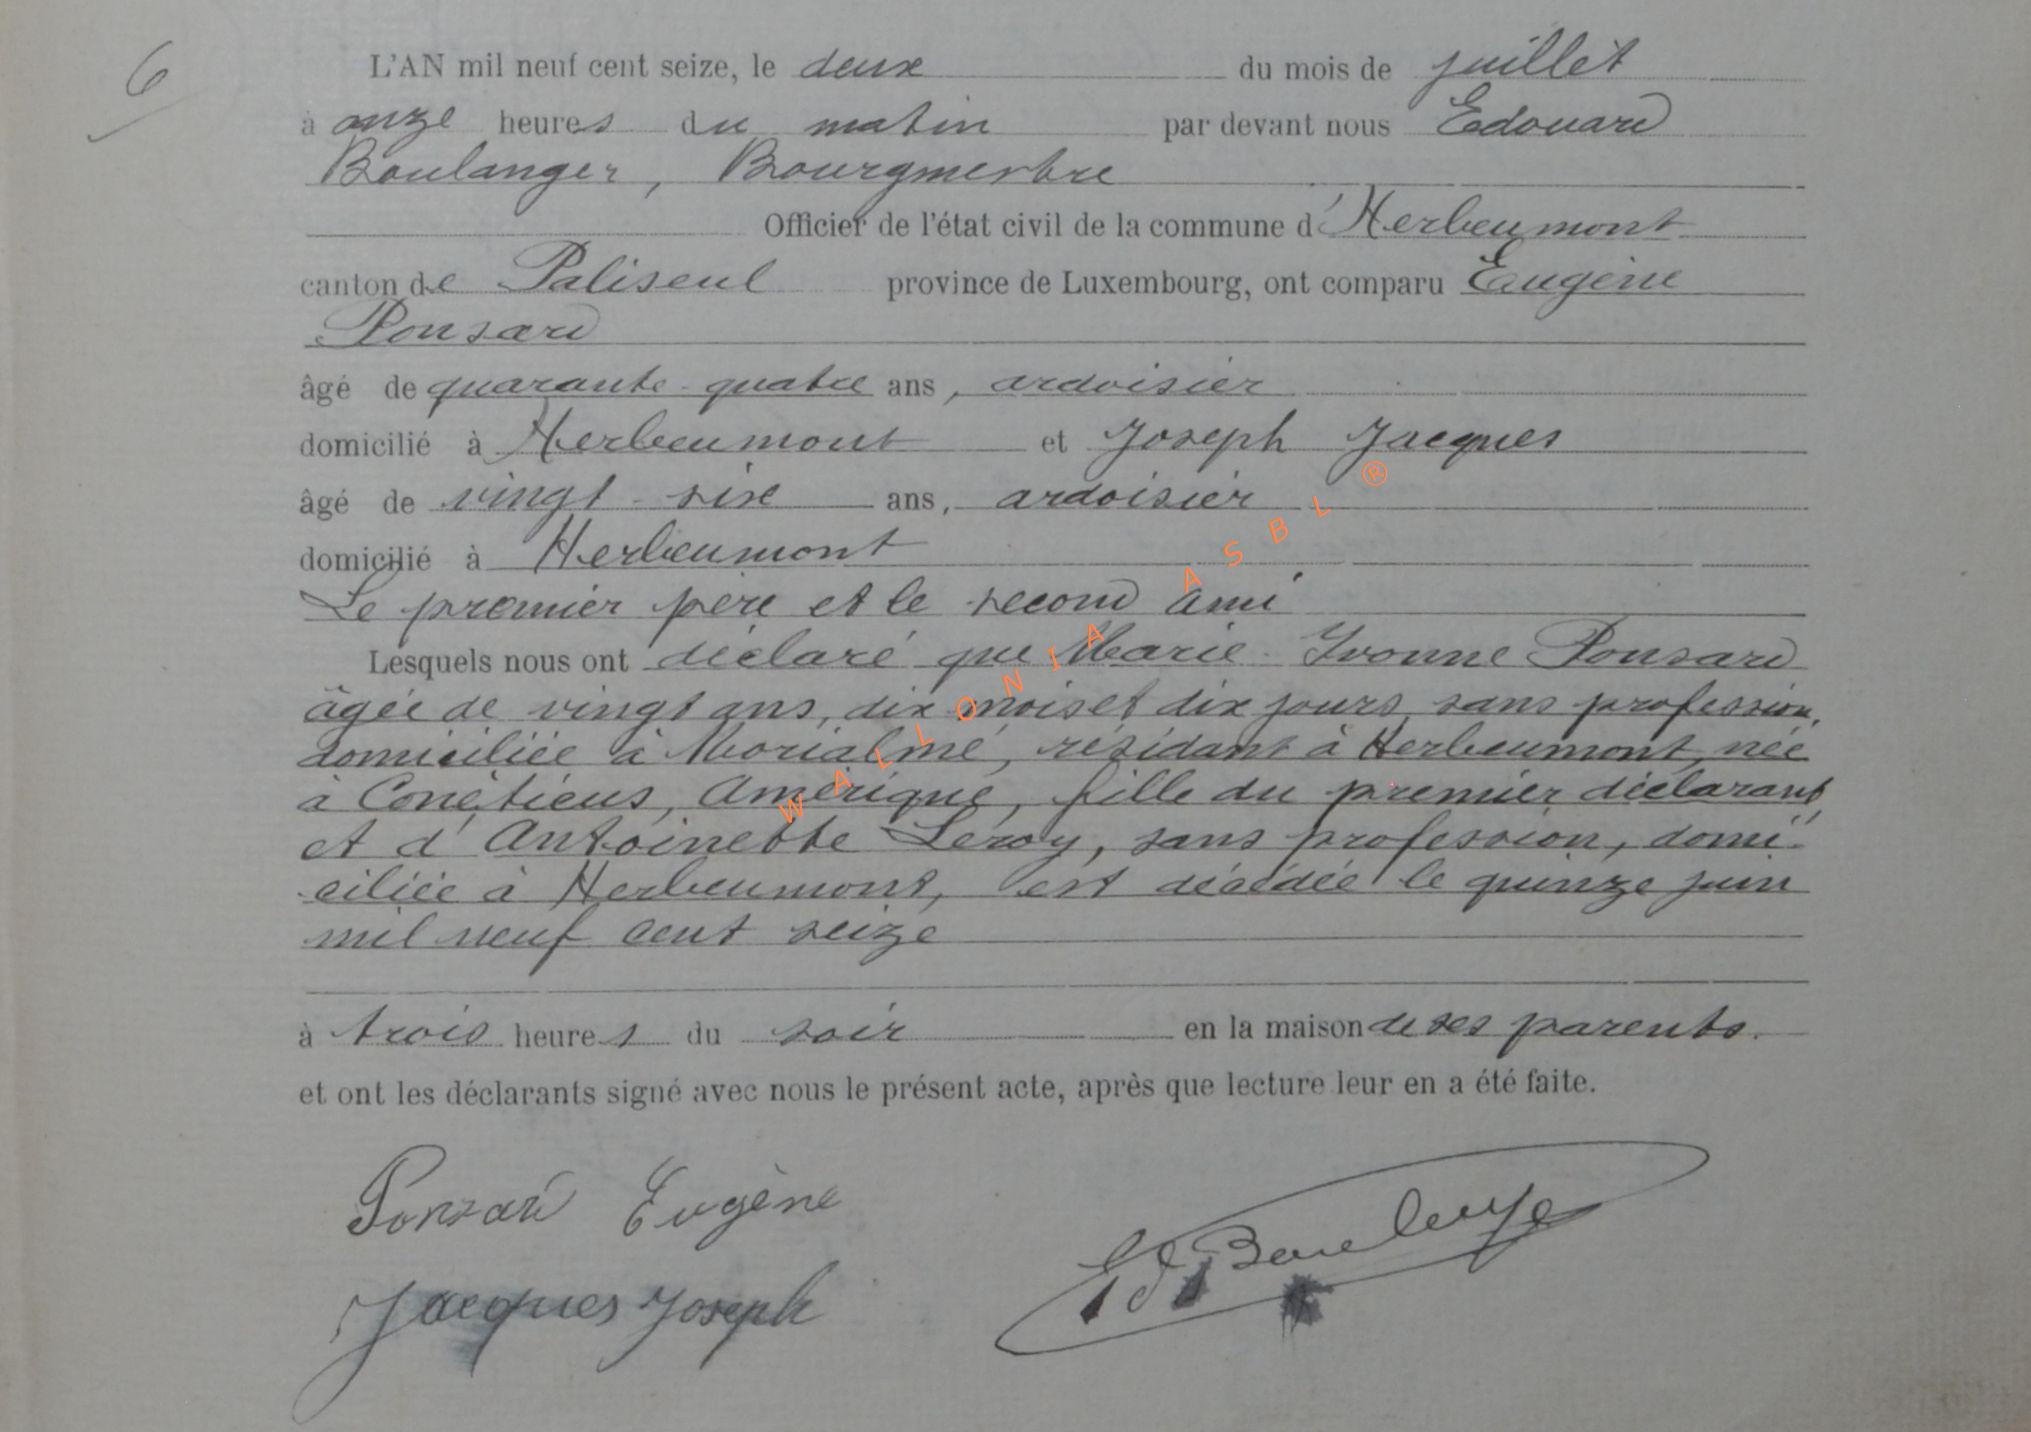 6
L'AN mil neuf cent seize, le deux du mois de juillet
à onze heures du matin par devant nous Edouard
Boulanger, Bourgmestre
Officier de l'état civil de la commune d'Herbeumont
canton de Paliseul province de Luxembourg, ont comparu Eugène
Ponsard
âgé de quarante-quatre ans, ardoisier
domicilié à Herbeumont et Joseph Jacques
âgé de vingt-six ans, ardoisier
domicilié à Herbeumont
Le premier père et le second ami
Lesquels nous ont déclaré que Marie-Yvonne Ponsard
âgée de vingt ans, dix mois et dix jours, sans profession,
domiciliée à Morialmé, résidant à Herbeumont, née
à Conétieus, Amérique, fille du premier déclarant,
et d'Antoinette Leroy, sans profession, domi-
ciliée à Herbeumont, est décédée le quinze juin
mil neuf cent seize
à trois heures du soir en la maison de ses parents.
et ont les déclarants signé avec nous le présent acte, après que lecture leur en a été faite.
Ponsard Eugène
Ed Boulanger
Jacques Joseph
WALLONIA ASBL ®